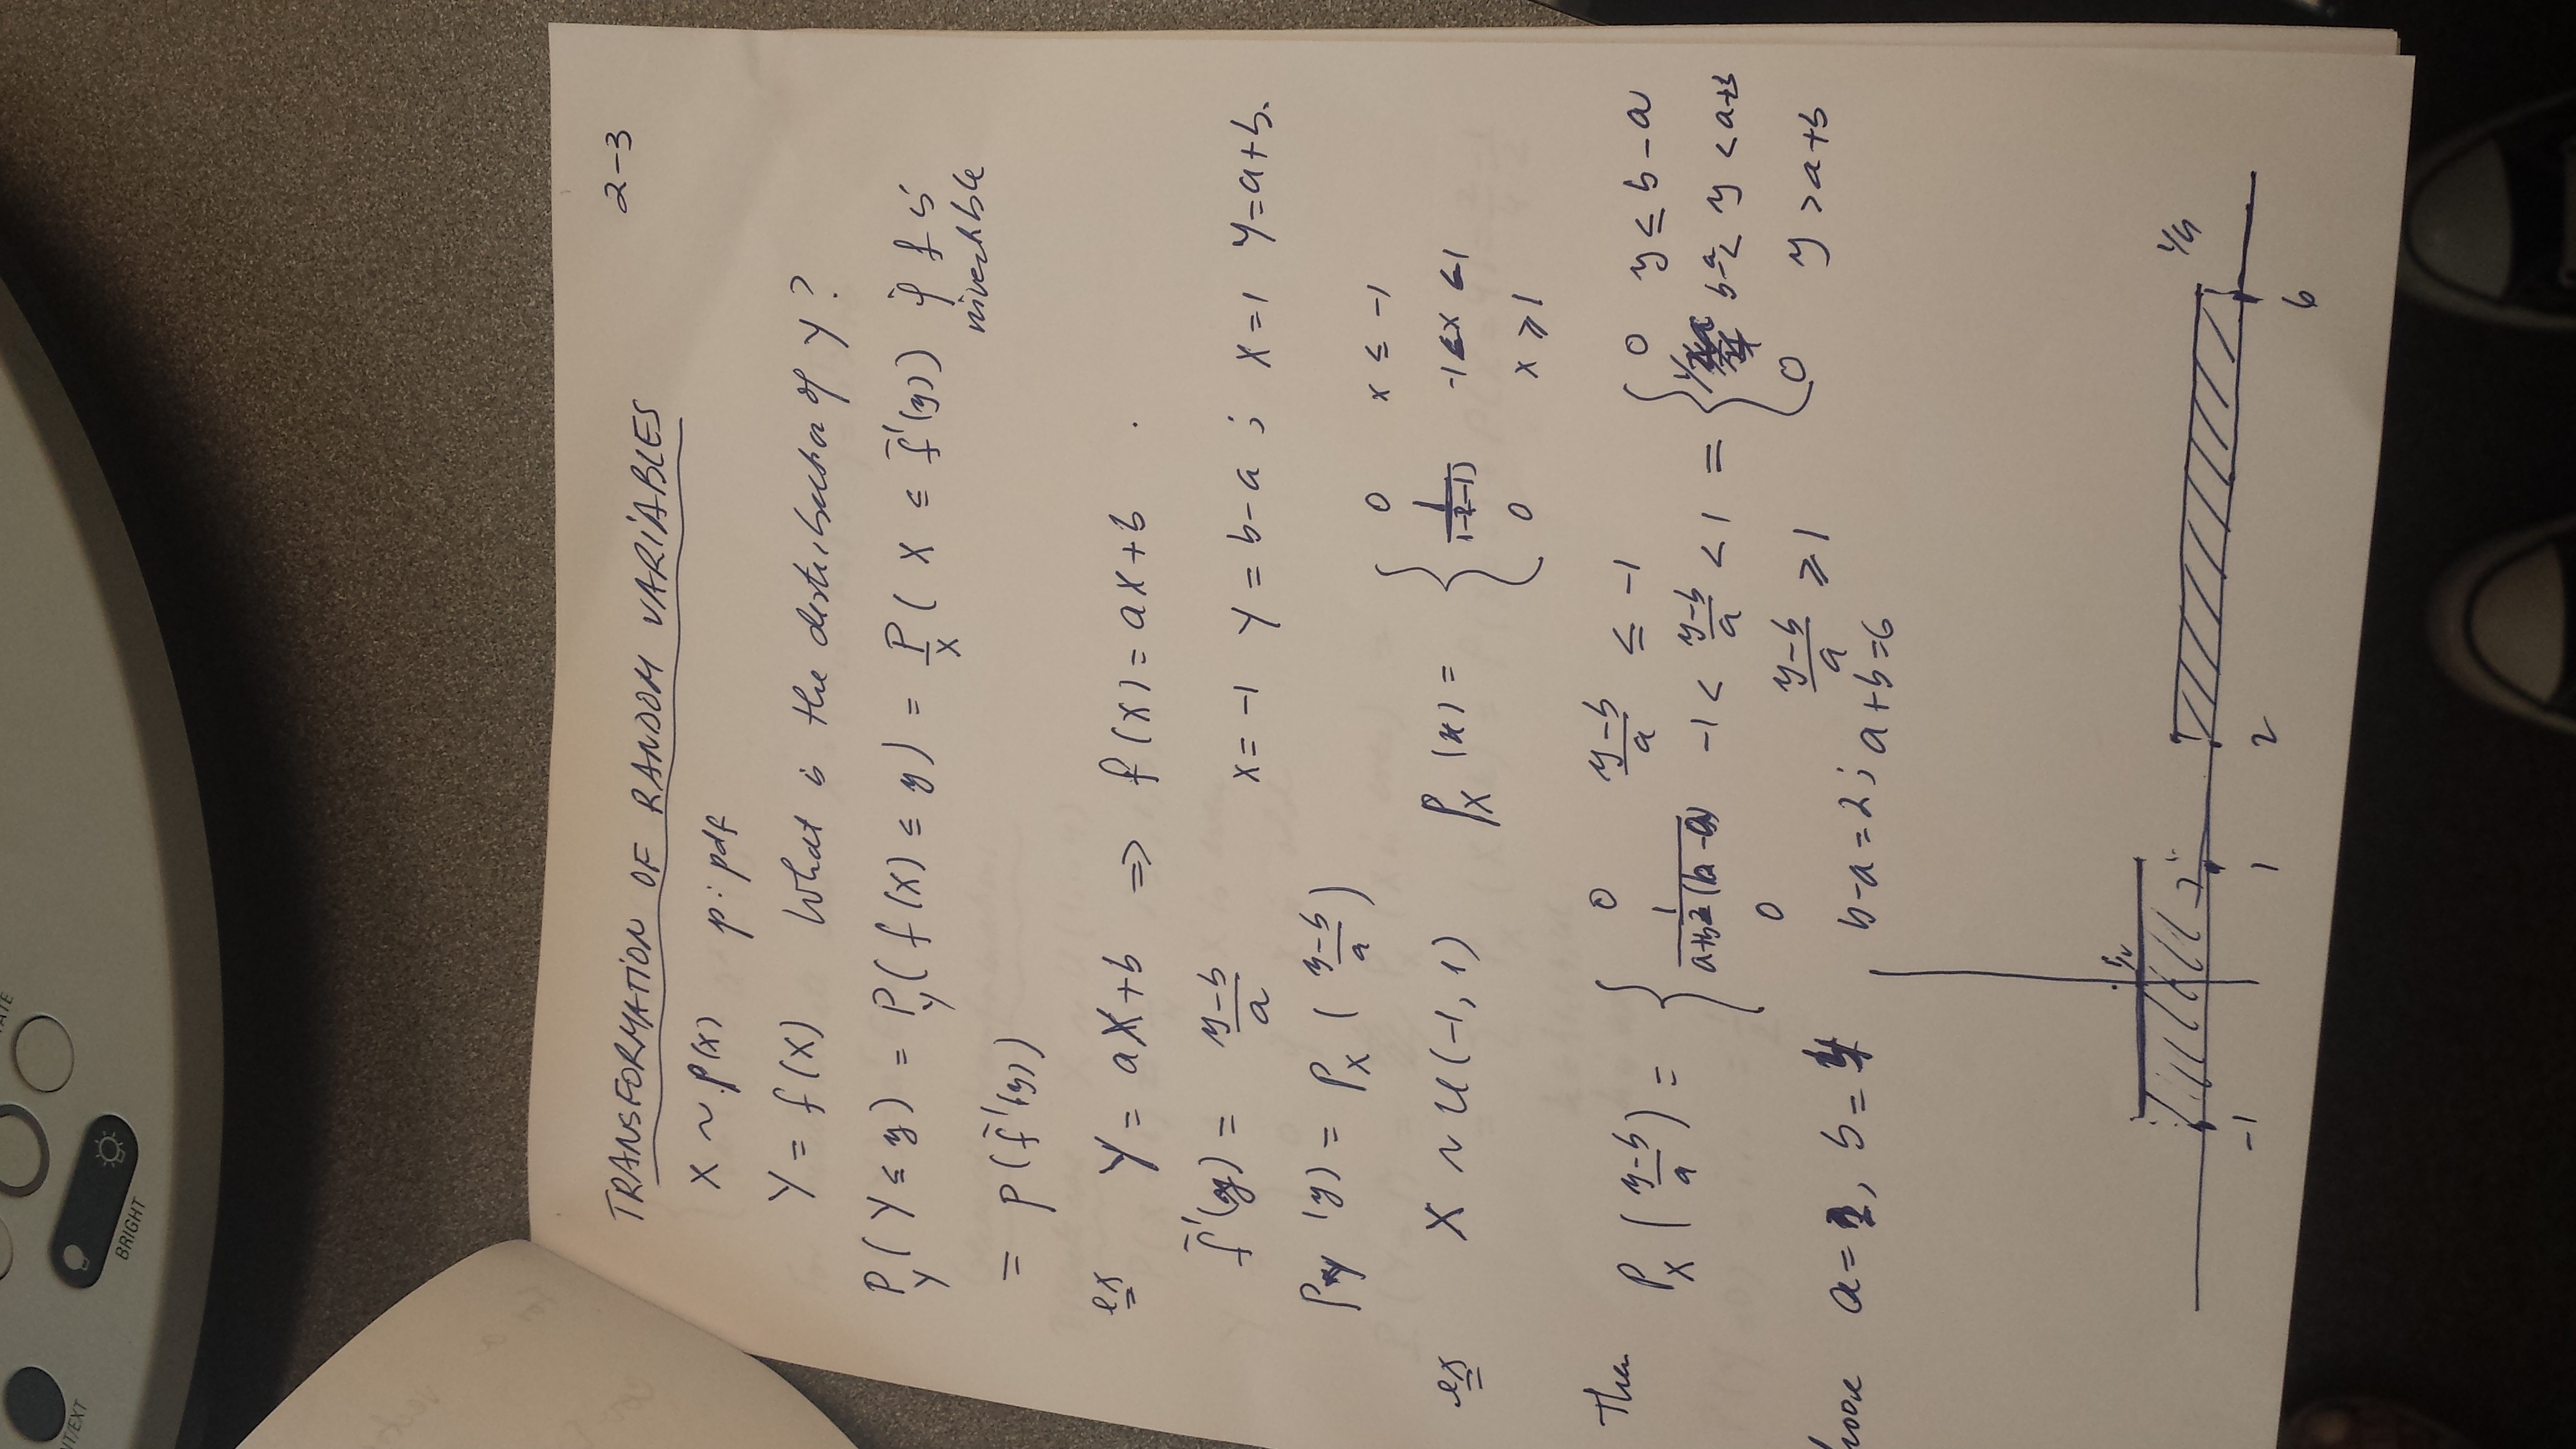 2-3
TRANSFORMATION OF RANDOM VARIABLES
X ~ p(x) p: pdf
Y = f(x) What is the distribution of Y?
P_Y(Y ≤ y) = P_Y(f(x) ≤ y) = P_X(X ≤ f⁻¹(y)) if f is
invertible
= P(f⁻¹(y))
ex Y = aX+b ⇒ f(x) = ax+b.
f⁻¹(y) = (y-b)/a x=-1 Y = b-a; x=1 Y=a+b.
P_Y(y) = P_X((y-b)/a)
0 x ≤ -1
ex X ~ U(-1,1) P_X(x) = { 1/(1-(-1)) -1<x<1
0 x ≥ 1
0 (y-b)/a ≤ -1 0 y ≤ b-a
Then P_X((y-b)/a) = { -1 < (y-b)/a < 1 = { b-a < y < a+b
0 (y-b)/a ≥ 1 0 y > a+b
a=2, b=4 b-a=2; a+b=6
1/2 1/4
-1 1 2 6
BRIGHT